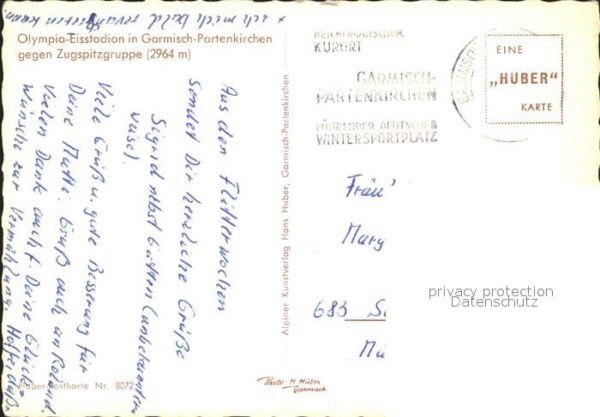 Olympia-Eisstadion in Garmisch-Partenkirchen
gegen Zugspitzgruppe (2964 m)
Aus den Flitterwochen
sendet Dir herzliche Grüße
Sigrid nebst Gatten (unbekannter-
weise).
Viele Grüße u. gute Besserung für
Deine Mutti. Gruß auch an Roland
Vielen Dank auch f. Deine Glück-
wünsche zur Vermählung. Hoffe, daß
ich mich bald revanchieren kann
Huber-Postkarte Nr. 8072
Alpiner Kunstverlag Hans Huber, Garmisch-Partenkirchen
HEILKLIMATISCHER
KURORT
GARMISCH-
PARTENKIRCHEN
FÜHRENDER DEUTSCHER
WINTERSPORTPLATZ
EINE
„HUBER"
KARTE
Marg
683
privacy protection
Datenschutz
Photo H. Huber
Garmisch